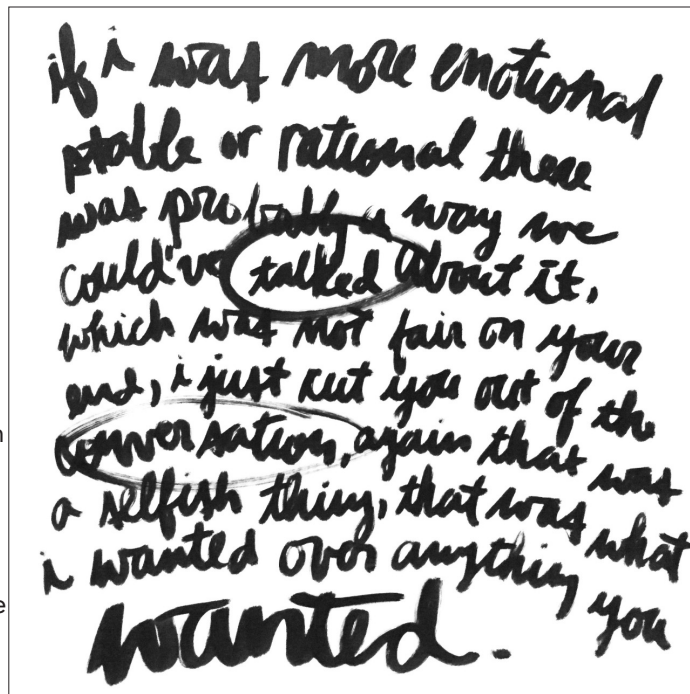 if i was more emotional
stable or rational there
was probably a way we
could've talked about it,
which was not fair on your
end, i just cut you out of the
conversation, again that was
a selfish thing, that was what
i wanted over anything you
wanted.